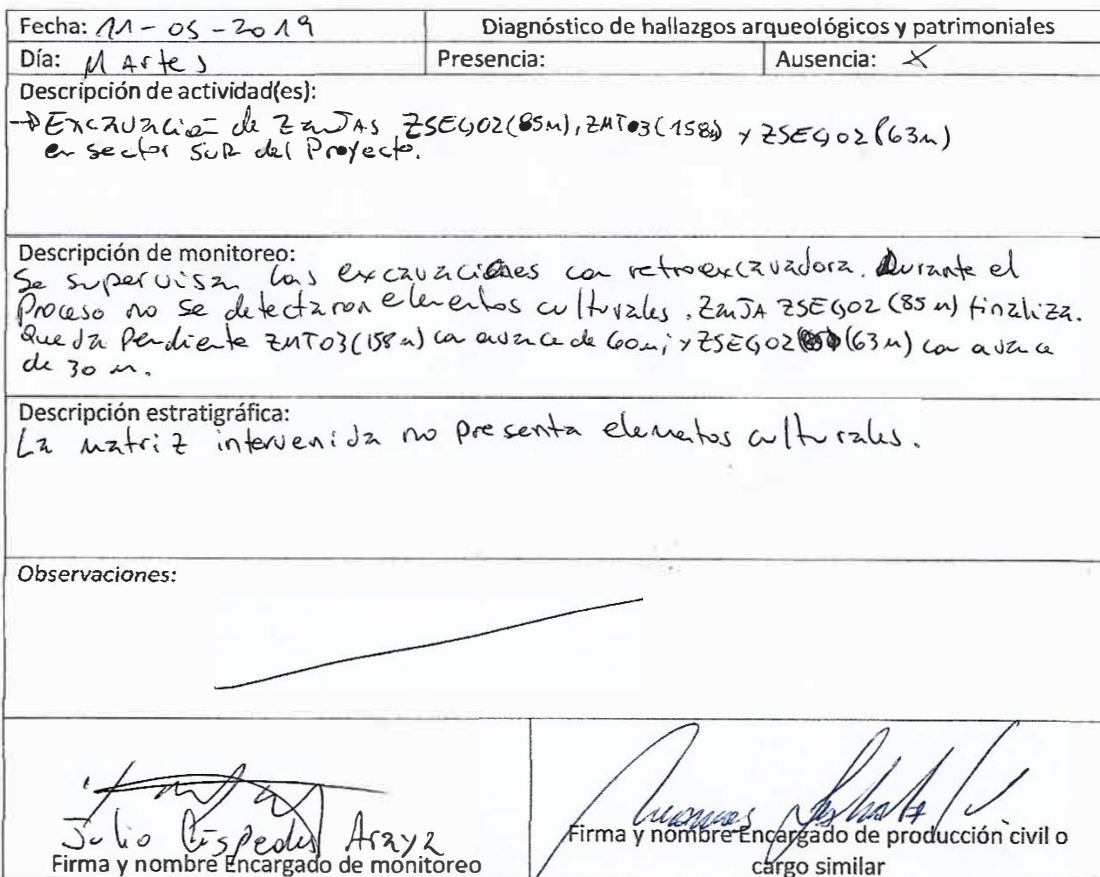 Fecha: 11-05-2019
Diagnóstico de hallazgos arqueológicos y patrimoniales
Día: Martes
Presencia:
Ausencia: X
Descripción de actividad(es):
→ Excavación de ZanJAS ZSEG02(85m), ZMT03(158m) y ZSEG02(63m)
en sector SUR del Proyecto.
Descripción de monitoreo:
Se supervisan las excavaciones con retroexcavadora. Durante el
Proceso no se detectaron elementos culturales. ZanJA ZSEG02 (85 m) finaliza.
Queda Pendiente ZMT03(158 m) con avance de 60m; y ZSEG02 (63m) con avance
de 30 m.
Descripción estratigráfica:
La matriz intervenida no presenta elementos culturales.
Observaciones:
Julio Céspedes Araya
Firma y nombre Encargado de monitoreo
Firma y nombre Encargado de producción civil o
cargo similar